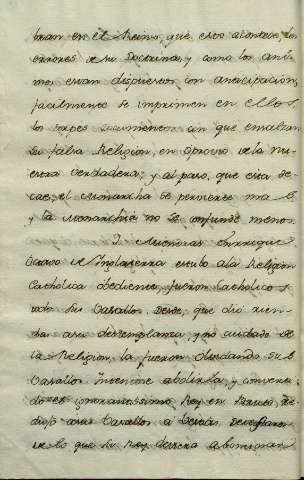 bran en el Reino, que esto acontece, los
errores de su Doctrina, y como los ani-
mos estan dispuestos con anticipacion,
facilmente se imprimen en ellos
los torpes documentos con que ensalzan
su falsa Religion, en oprovio de la nu-
estra verdadera; y al paso, que esta de-
cae, el Monarcha se pervierte mas,
y la Monarchia no se confunde menos.
Mientras Enrrique
Octavo de Inglaterra estubo a la Religion
Catholica obediente, fueron Catholicos
todos sus Vasallos. Desde, que dió rien-
da a su destemplanza, y no cuidado de
la Religion, la fueron olvidando sus
Vasallos. Intentó abolirla, y
el ignorantissimo Rey en
sus Vasallos a
de lo que su Rey deviera abominar